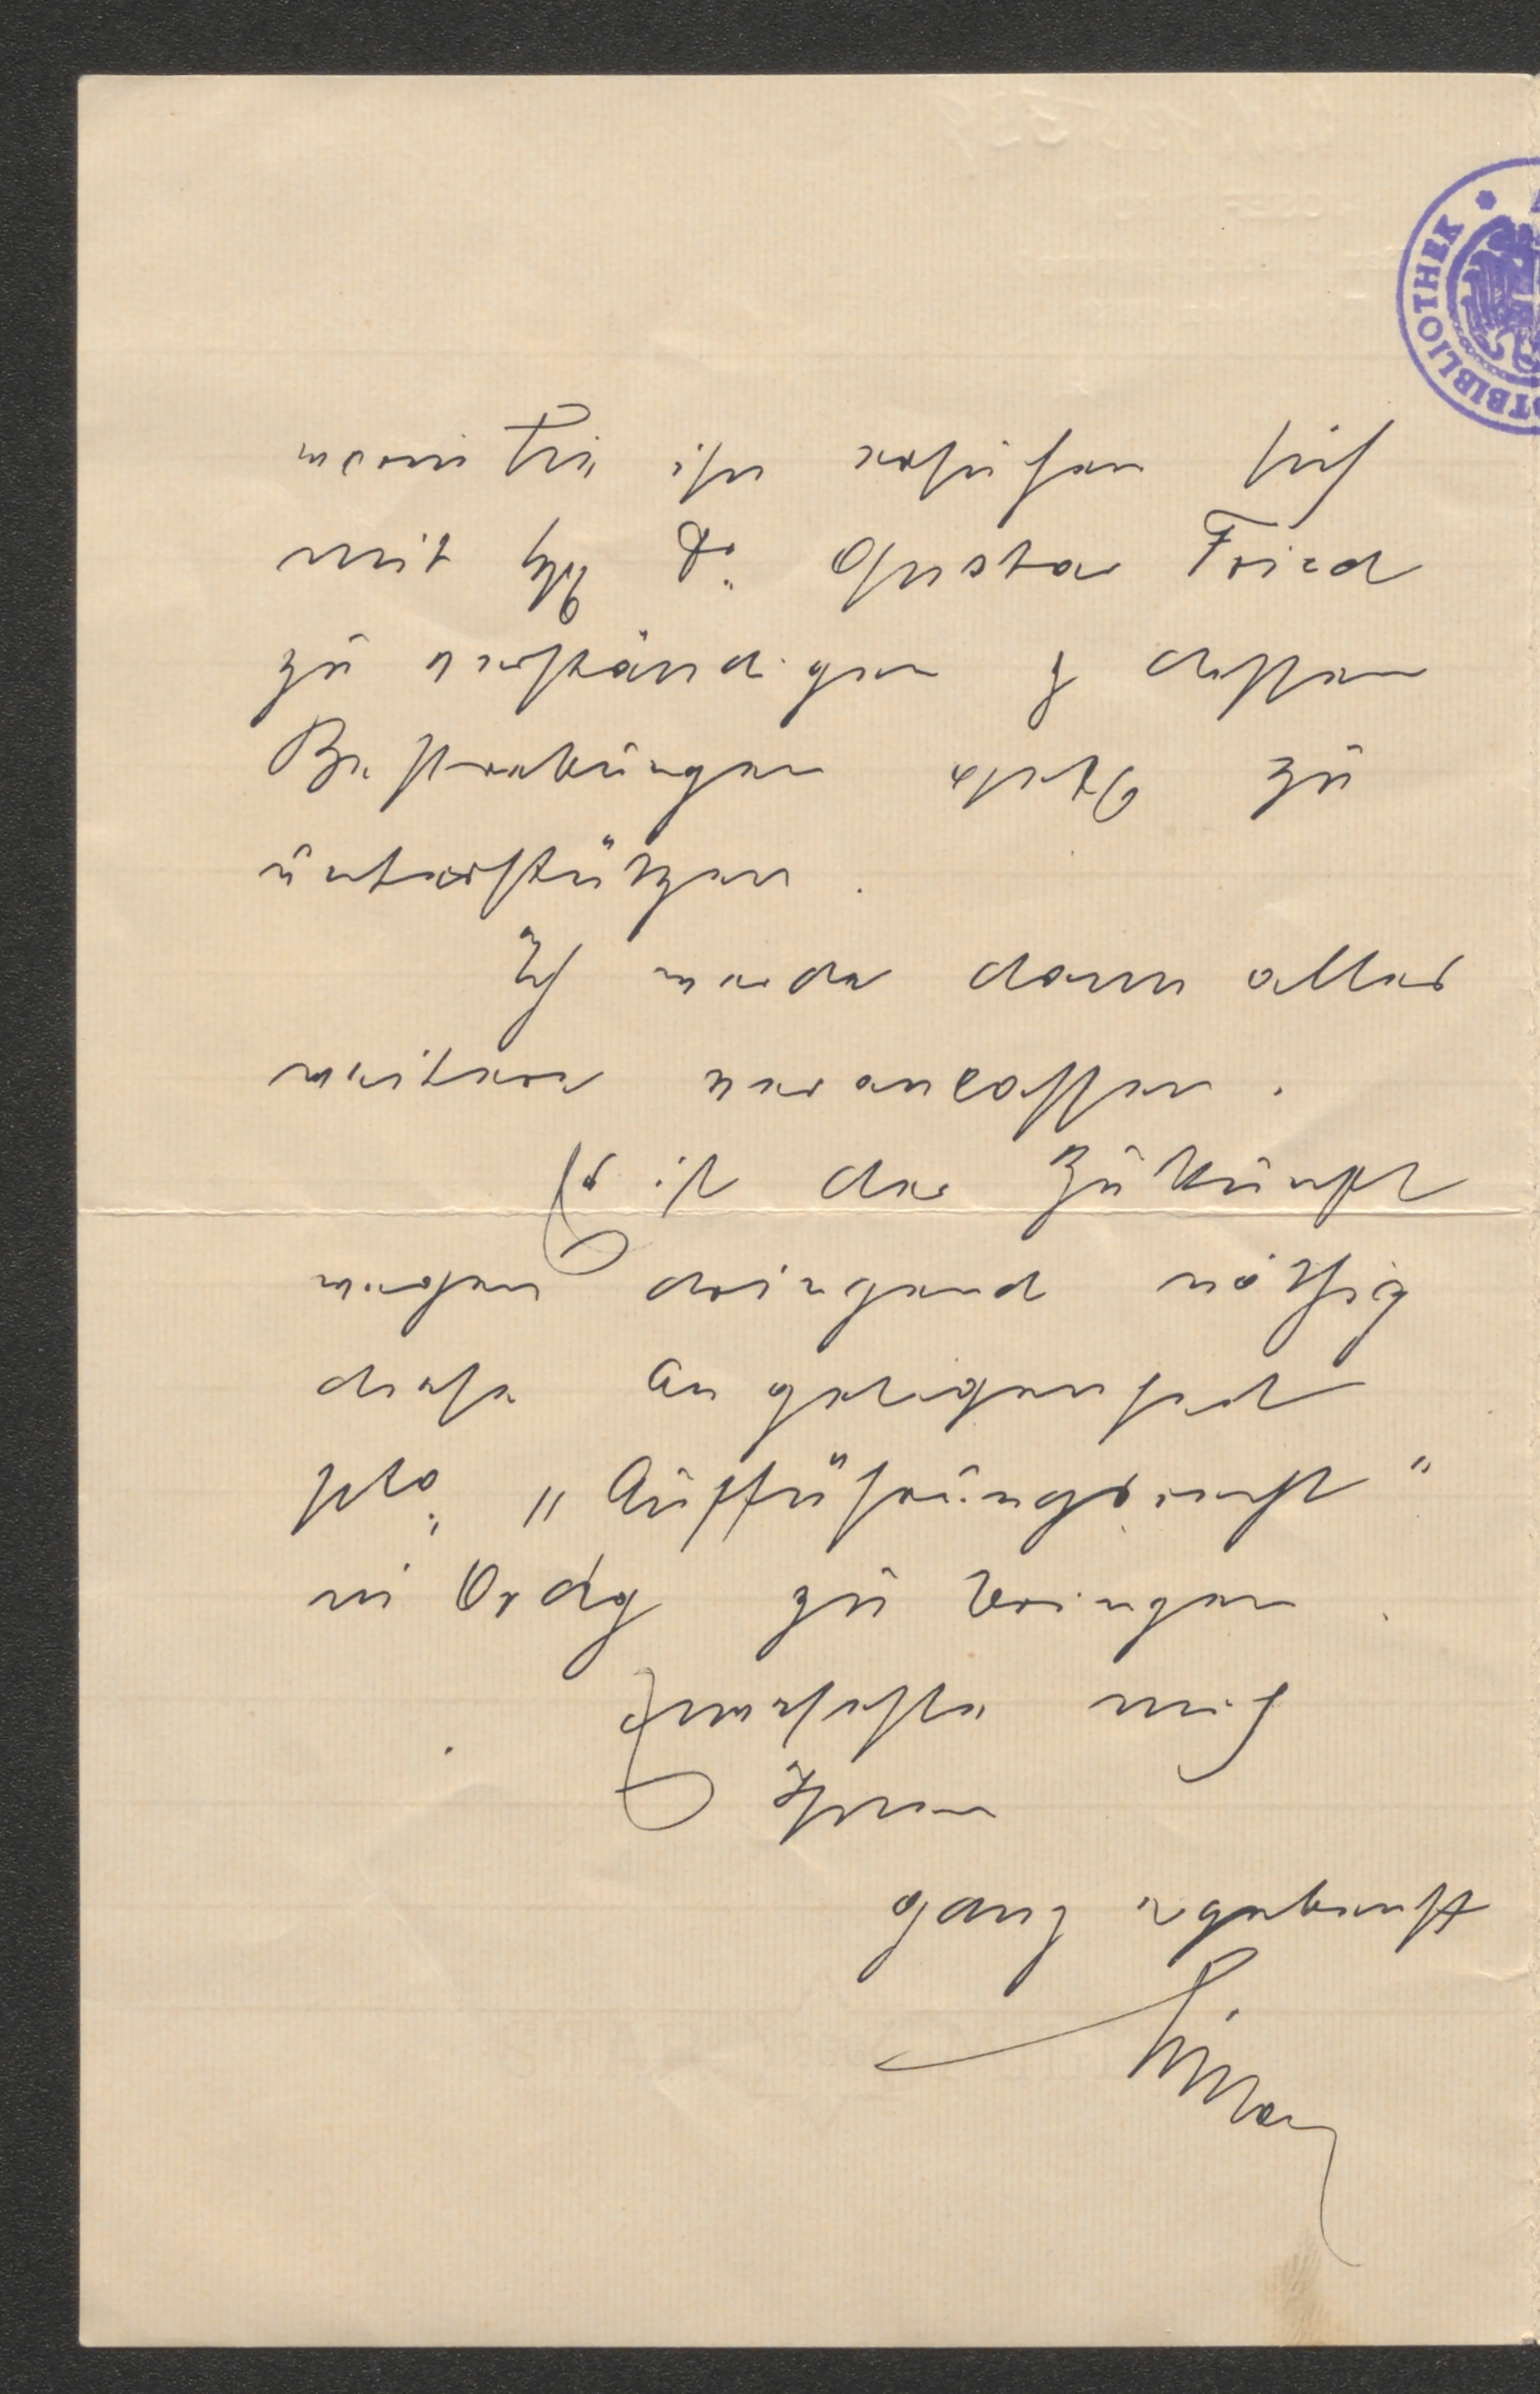 wenn Sie ihn ersuchen sich
mit H Dr. Gustav Fried
zu verständigen & dessen
Bestrebungen zu
unterstützen.
Ich werde dann alles
weitere veranlassen.
Es ist der Zukunft
wegen dringend nöthig
diese Angelegenheit
pto. „Aufführungsrecht“
in Ordg zu bringen.
mich
Ihnen
ganz ergebenst
BIBLIOTHEK